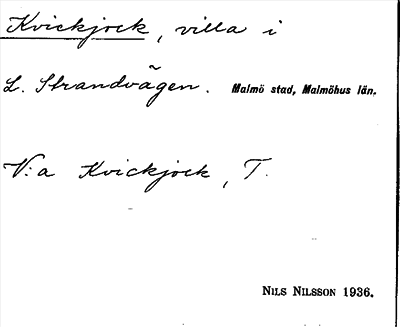 Kvickjock, villa i
L. Strandvägen. Malmö stad, Malmöhus län.
V:a Kvickjock, T.
NILS NILSSON 1936.